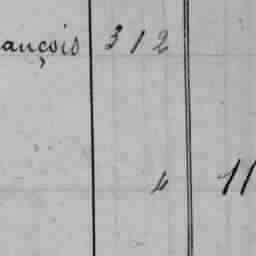 ançois 312
4 11